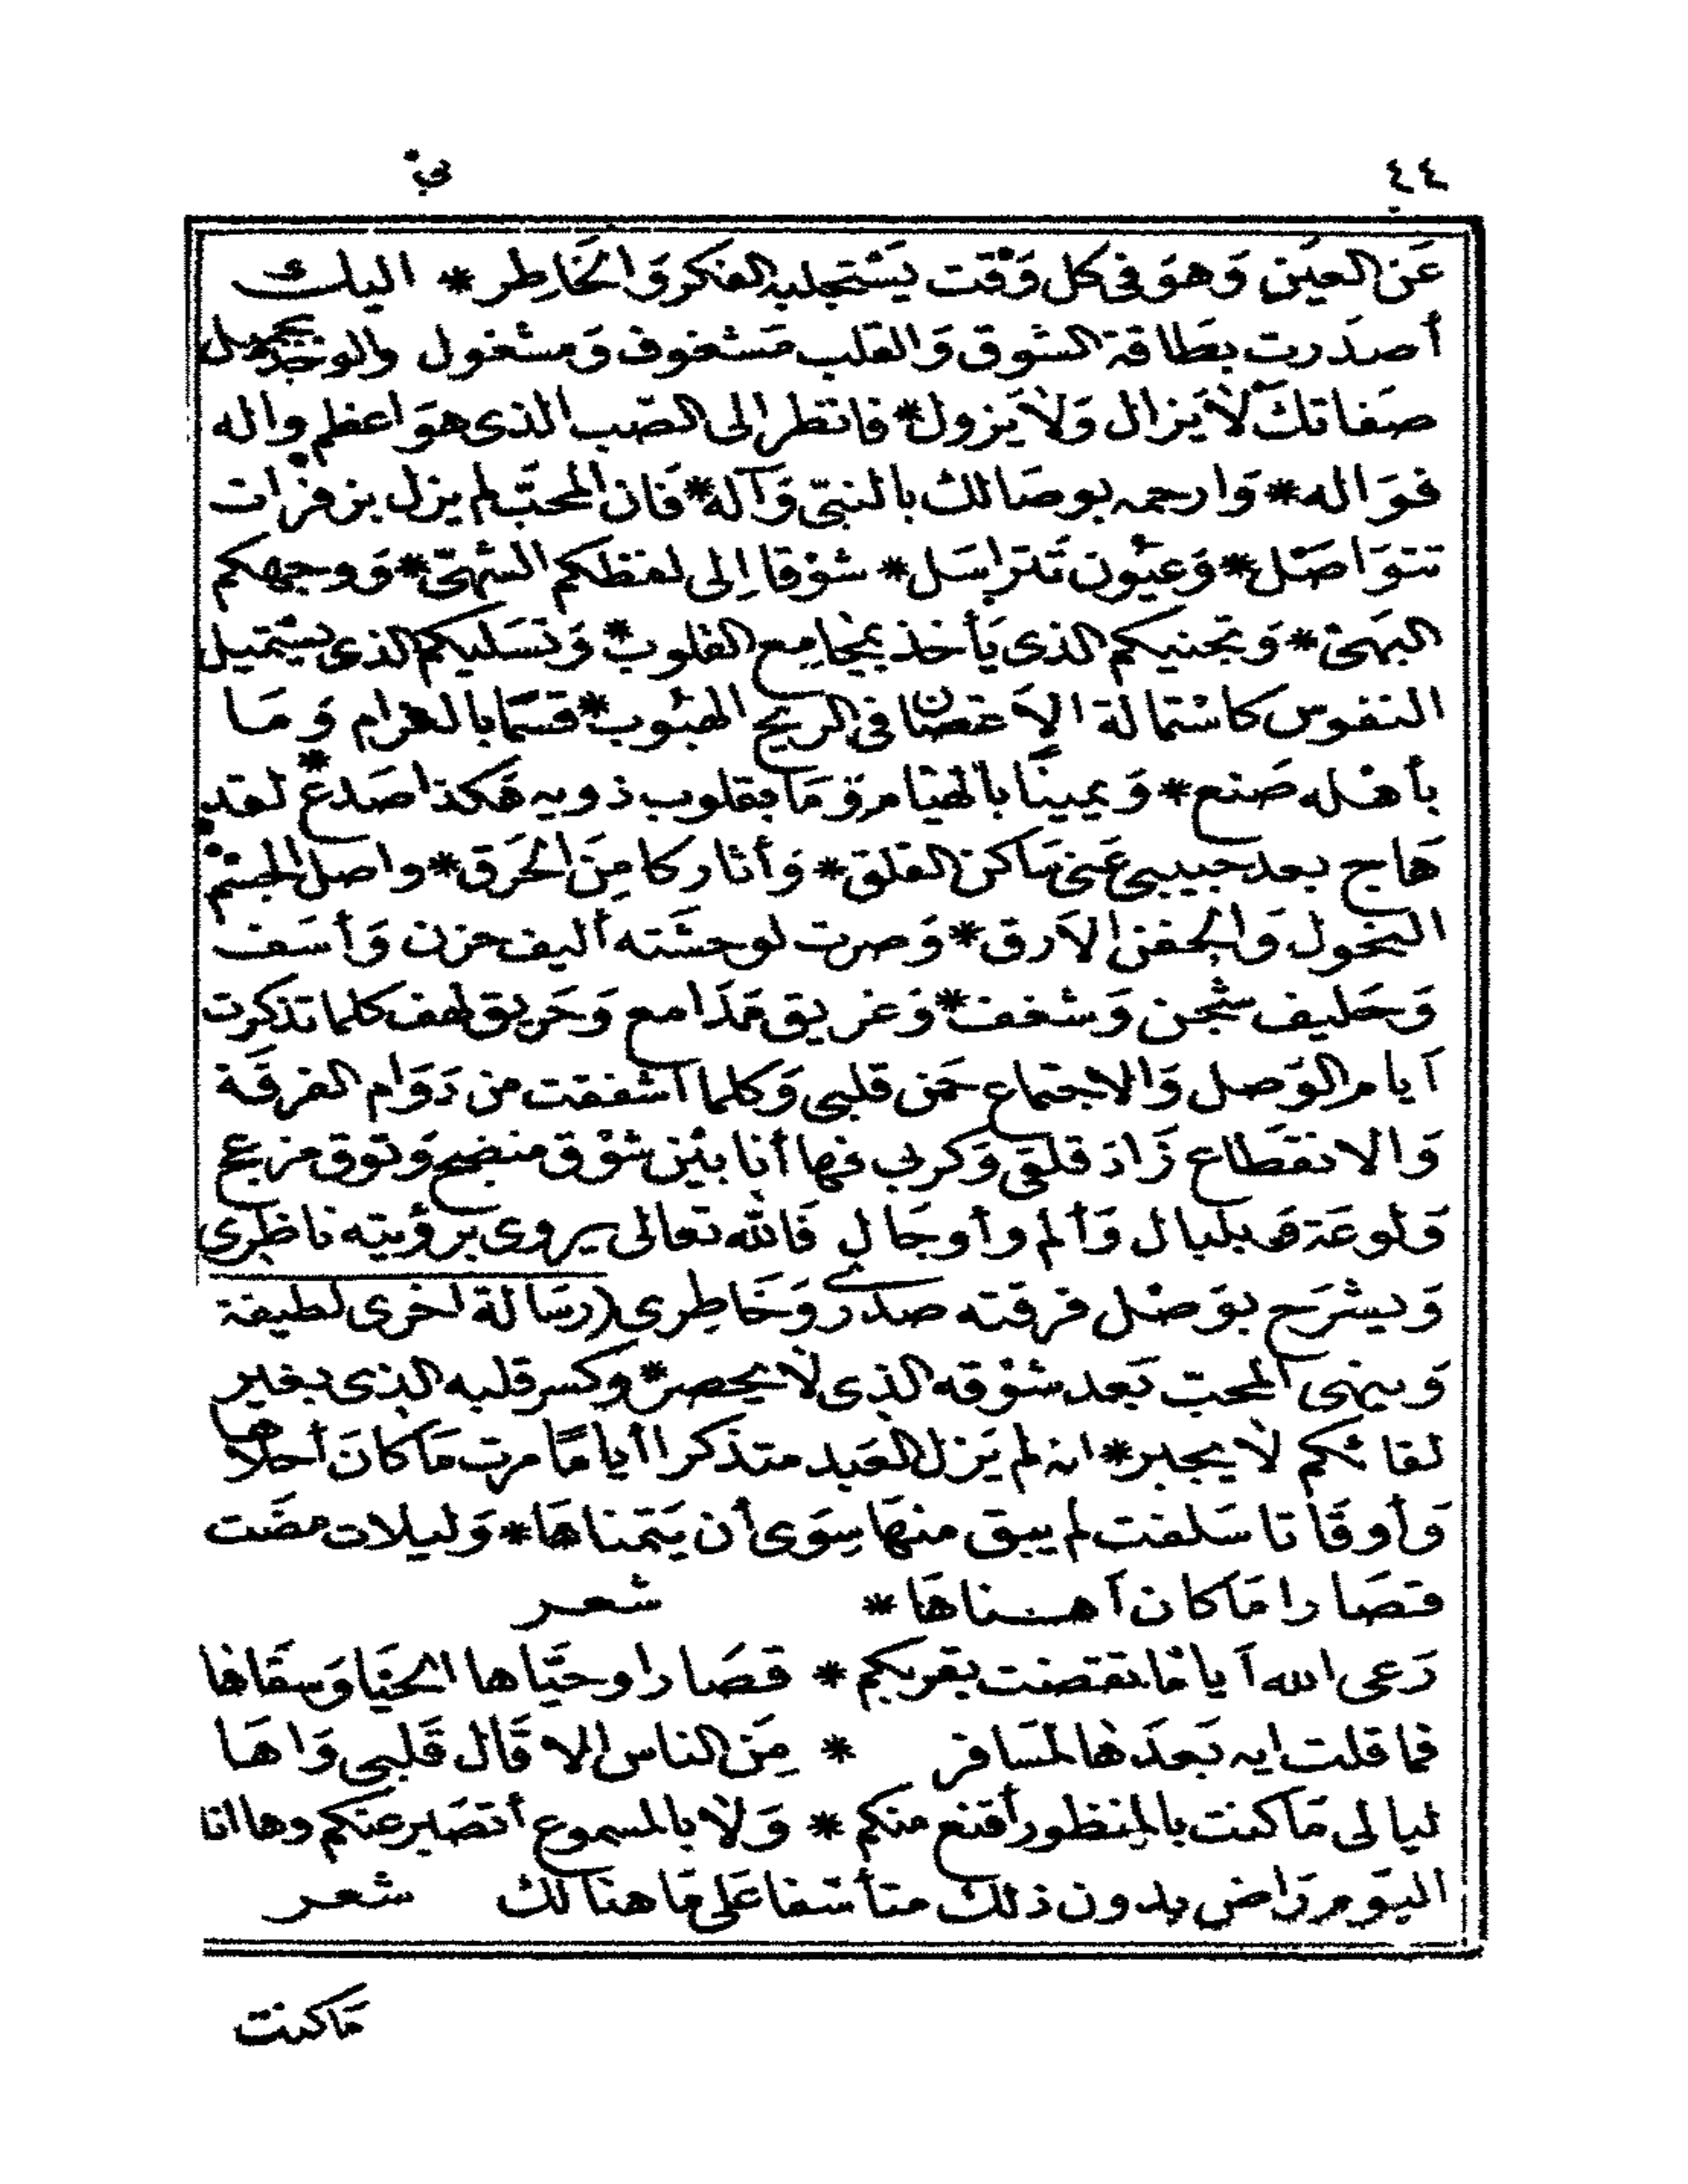 ٤٤
في
عَن العين وَهوَ في كل وَقت يَستجلبه الفكر وَالخَاطِر * اليك
أصدَرت بطَاقة الشوق وَالقلب مَشغوف وَمشغول والوجد بجميل
صَفاتك لاَيَزال وَلاَيَزول * فانظر الى الصّب الذى هوَ اعظم واله
فوَاله * وَارحمه بوصَالك بالنبىّ وَآله * فَان المحبّ لم يزل بزفرات
تتوَاصَل * وَعيُون تَتراسَل * شوْقا اِلى لفظكم الشهىّ * وَوجهكم
البَهىّ * وَتجنيكم الذى يَأخذ بمجَامِع القلوب * وَتسَليكم الذى يستميل
النفوس كاستمالة الاَغصَان في الريح الهبُوب * قسَمًا بالغرام وَمَا
بأهله صَنع * وَيمينًا بالهيَام وَمَا بقلوب ذويه هَكذا صَدع * لقد
هَاج بعد حبيبى عَنى سَاكن القلق * وَأثار كامِنَ الحَرَق * واصل الجسْم
النحول وَالجفن الاَرق * وَصرت لوحشَته أليف حزن وَأسَف
وَحَليف شجن وَشغف * وَغريق مَدَامع وَحَريق لهف كلما تذكرت
أيام الوَصل وَالاجتماع حَن قلبى وَكلما أشفقت من دَوَام الفرقَة
وَالانقطَاع زَادَ قلقى وَكربى فها أنا بيْن شوْق منضج وَتوق مزعج
وَلوعَة وَبلبال وَألم وأوجَال فَالله تعالى يروى برؤيته ناظِرى
وَيشرَح بوَصْل فرقته صدرى وَخَاطِرى (رسَالة اخرى لطيفة
وَينهى المحب بَعد شوْقه الذى لاَ يحصر * وكسر قلبه الذى بغير
لقائكم لاَ يجبر * انه لم يَزل العَبد متذكرا أيامًا مرت مَا كانَ أحلاها
وَأوقَاتا سَلفت لم يبق منهَا سِوَى أن يَتمناهَا * وَليلات مضَت
قصَارا مَا كان أهـناهَا * شعر
رَعى الله أيامًا تقضت بقربكم * قصَارا وحَيّاها الحَيَا وَسقَاهَا
فما قلت ايه بَعدَها لمسَافر * مِن الناس الا قَال قَلبى وَاهَا
ليالى مَاكنت بالمنظور أقنع منكم * وَلاَ بالمسموع أتصَبر عنكم وها انا
اليَوم رَاض بدون ذلك متأسفا عَلى مَا هنالك شعر
مَاكنت